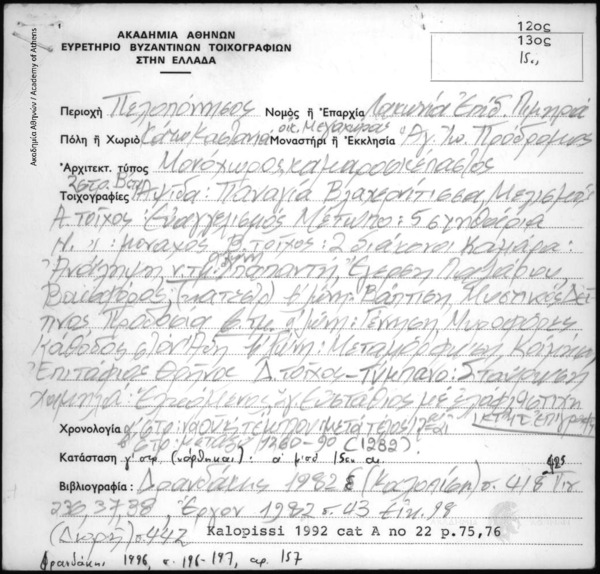 ΑΚΑΔΗΜΙΑ ΑΘΗΝΩΝ
ΕΥΡΕΤΗΡΙΟ ΒΥΖΑΝΤΙΝΩΝ ΤΟΙΧΟΓΡΑΦΙΩΝ
ΣΤΗΝ ΕΛΛΑΔΑ
12ος
13ος
15.,
Ακαδημία Αθηνών / Academy of Athens
Περιοχή Πελοπόννησος Νομός ἤ Ἐπαρχία Λακωνία Ἐπίδ. Λιμηρά
Πόλη ἤ Χωριό Κάτω Καστανιά οικ. Μεγαχώρας Μοναστήρι ἤ Ἐκκλησία Ἁγ. Ἰω. Πρόδρομος
Ἀρχιτεκτ. τύπος Μονόχωρος καμαροσκέπαστος
Τοιχογραφίες Ἀψίδα: Παναγία Βλαχερνίτισσα, Μελισμός
Α. τοῖχος: Εὐαγγελισμός Μέτωπο: 5 στηθάρια
Ν. " : μοναχός Β. τοῖχος: 2 διάκονοι Καμάρα:
Ἀνάληψη Ὑπαπαντή, Ἔγερση Λαζάρου,
Βαϊοφόρος, β' ζώνη: Βάπτιση, Μυστικός Δεῖ-
πνος, Προδοσία α' ζώνη: Γέννηση, Μυροφόρες
Κάθοδος στον Ἅδη β' ζώνη: Μεταμόρφωση, Κοίμηση
Ἐπιτάφιος Θρῆνος Δ. τοῖχος - Τύμπανο: Σταύρωση
Χαμηλά: Ἑλκόμενος, ἅγ. Εὐστάθιος με ἐλάφι
Χρονολογία α' στρ:
β' στρ: μεταξύ 1260-90 (1282)
Κατάσταση γ' στρ. (νάρθηκας): α' μισό 15ου αι.
Βιβλιογραφία: Δρανδάκης 1982 (Καλοπίση) σ. 418
236, 37-38 Ἔργον 1982 σ. 43 εἰκ. 98
σ. 442
Kalopissi 1992 cat A no 22 p.75,76
Δρανδάκης 1996, σ. 196-197, αρ. 157